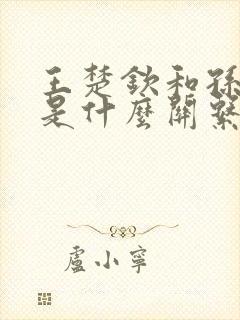 王楚欽和孫
是什麼關繫
盧小寧